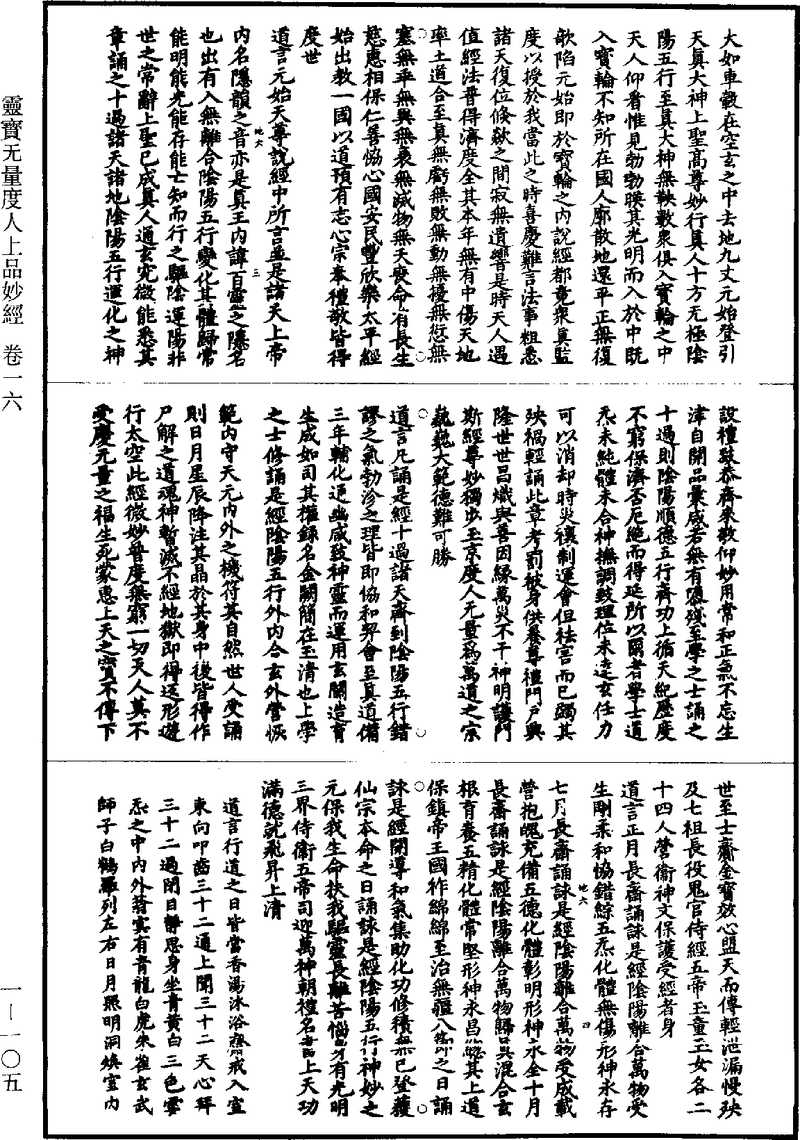 靈寶无量度人上品妙經 卷一六
一—一〇五
大如車轂在空玄之中去地九丈元始登引
天真大神上聖高尊妙行真人十方无極陰
陽五行至真大神無鞅數衆俱入寶輪之中
天人仰看惟見勃勃暎其光明而入於中既
入寶輪不知所在國人廓散地還平正無復
欹陷元始即於寶輪之內說經都竟衆真監
度以授於我當此之時喜慶難言法事粗悉
諸天復位倏歘之間寂無遺響是時天人遇
值經法普得濟度全其本年無有中傷天地
率土道合至真無虧無敗無動無擾無愆無
塞無平無興無衰無減物無夭喪命有長生
慈惠相保仁善恊心國安民豐欣樂太平經
始出教一國以道預有志心宗奉禮敬皆得
度世
道言元始天尊說經中所言並是諸天上帝
內名隱韻之音亦是真王內諱百靈之隱名
也出有入無離合陰陽五行變化其體歸常
能明能光能存能亡知而行之驅陰運陽非
世之常辭上聖已成真人通玄究微能悉其
章誦之十過諸天諸地陰陽五行運化之神
地六 三
設禮駐恭齊來敬仰妙用常和正氣不忘生
津自開品彙咸若無有隱殘至學之士誦之
十過則陰陽順德五行齊功上循天紀歷度
不窮保濟否厄絕而得延所以爾者學士道
炁未純體未合神撫調致理位未逮玄任力
可以消却時災禳制運會但祛害而已蠲其
殃禍輕誦此章考罰被身供養尊禮門戶興
隆世世昌熾與善因緣萬災不干神明護門
斯經尊妙獨步玉京度人无量為萬道之宗
巍巍大範德難可勝
道言凡誦是經十過諸天齊到陰陽五行錯
謬之氣勃沴之理皆即協和契會至真道備
三年輔化通幽感致神靈而運用玄關造育
生成如司其權錄名金闕簡在玉清也上學
之士修誦是經陰陽五行外內合玄外營恢
範內守天元內外之機符其自然世人受誦
則日月星辰降注其晶於其身中後皆得作
尸解之道魂神暫滅不經地獄即得返形遊
行太空此經微妙普度無窮一切天人莫不
受慶无量之福生死蒙惠上天之寶不傳下
世至士齎金寶效心盟天而傳輕泄漏慢殃
及七祖長役鬼官侍經五帝玉童玉女各二
十四人營衛神文保護受經者身
道言正月長齋誦詠是經陰陽離合萬物受
生剛柔和協錯綜五炁化體無傷形神永存
地六 四
七月長齋誦詠是經陰陽離合萬物受成載
營抱魄充備五德化體彰明形神永全十月
長齋誦詠是經陰陽離合萬物歸具混合玄
根育養五精化體常堅形神永昌懿其上道
保鎮帝王國祚綿綿至治無疆八節之日誦
詠是經開導和氣集助化功修積無已登獲
仙宗本命之日誦詠是經陰陽五行神妙之
元保我生命扶我驅靈長離苦惱身有光明
三界侍衛五帝司迎萬神朝禮名書上天功
滿德就飛昇上清
道言行道之日皆當香湯沐浴齋戒入室
東向叩齒三十二通上聞三十二天心拜
三十二過閉目靜思身坐青黃白三色雲
炁之中內外蓊冥有青龍白虎朱雀玄武
師子白鶴羅列左右日月照明洞煥室內